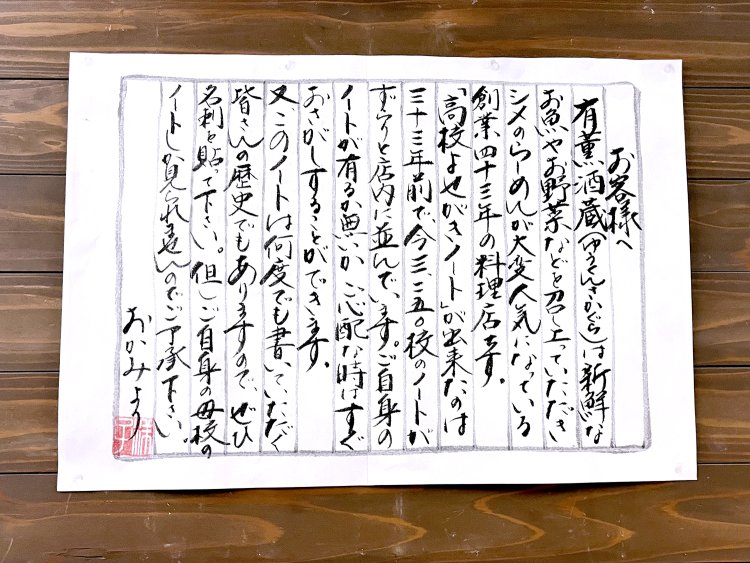 お客様へ
有薫酒蔵(ゆうくんさかぐら)は新鮮な
お魚やお野菜などを召し上っていただき
シメのらーめんが大変人気になっている
創業四十三年の料理店です。
「高校よせがきノート」が出来たのは
三十三年前で、今三、三五〇校のノートが
ずらりと店内に並んでいます。ご自身の
ノートが有るか無いか、心配な時はすぐ
おさがしすることができます。
又このノートは何度でも書いていただく
皆さんの歴史でもありますので、ぜひ
名刺を貼って下さい。但しご自身の母校の
ノートしか見られませんのでご了承下さい。
おかみより